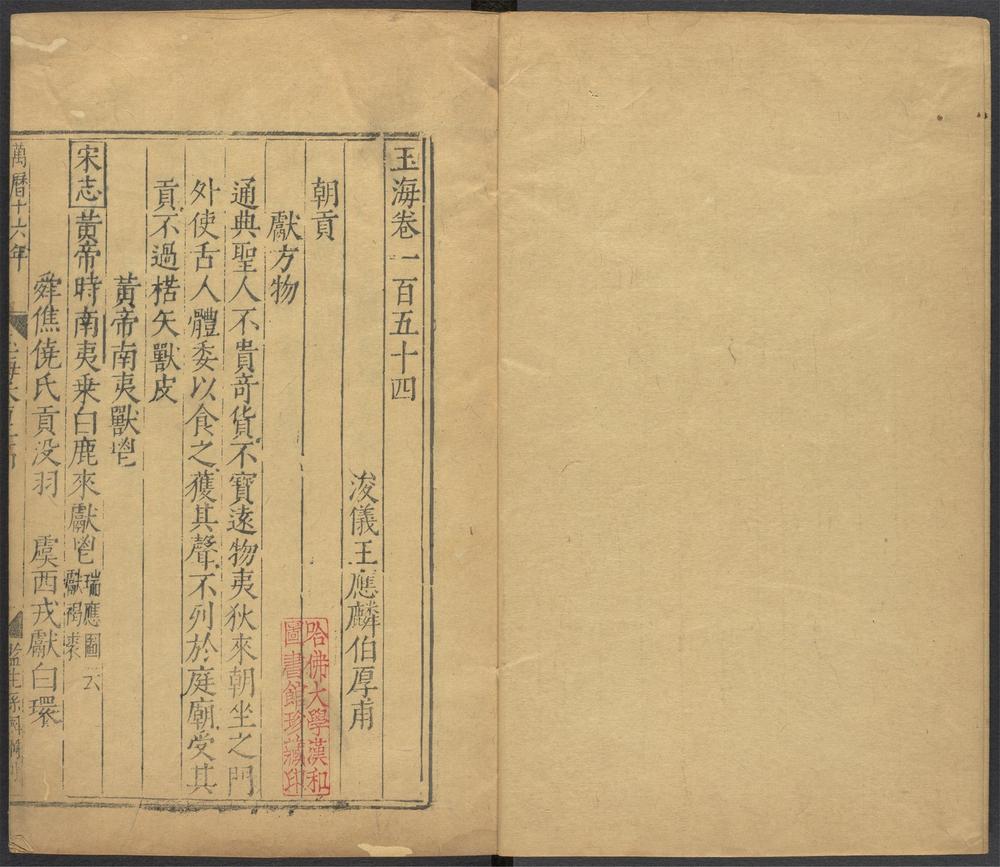 玉海卷一百五十四
浚儀王應麟伯厚甫
朝貢
獻方物
通典聖人不貴竒貨不寶逺物夷狄來朝坐之門
外使舌人體委以食之獲其聲不列於庭廟受其
貢不過楛矢獸皮
黃帝南夷獻鬯
宋志黃帝時南夷乗白鹿來獻鬯瑞應圖云
獻褐裘
舜僬僥氏貢没羽 虞西戎獻白環
萬曆十六年
哈佛大學漢和
圖書館珍藏印